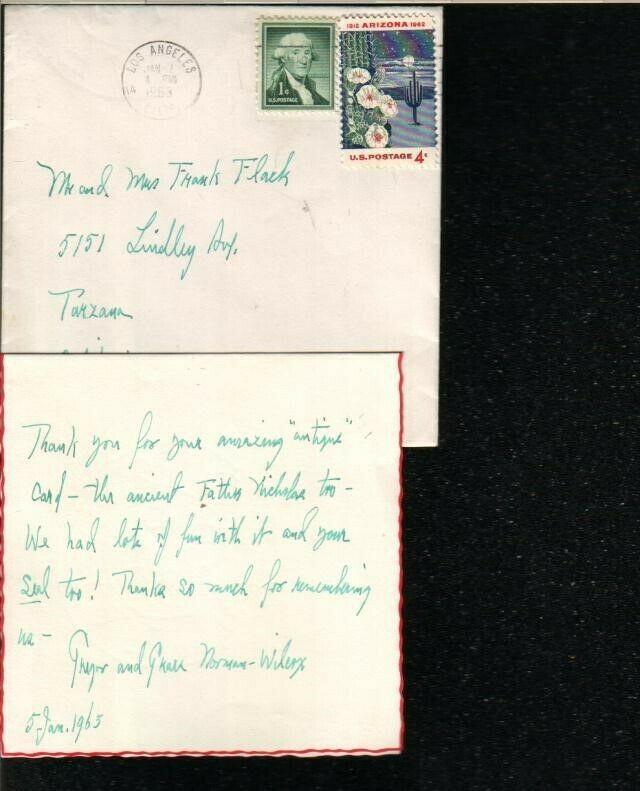 LOS ANGELES
1963
1¢
U.S. POSTAGE
1912 ARIZONA 1962
U.S. POSTAGE 4¢
Mr and Mrs Frank Flack
5151 Lindley Av.
Tarzana
Thank you for your amazing "antique"
Card – the ancient Father Nicholas too –
We had lots of fun with it and your
Seal too! Thanks so much for remembering
us –
and Grace Norman-Wilcox
5 Jan. 1963